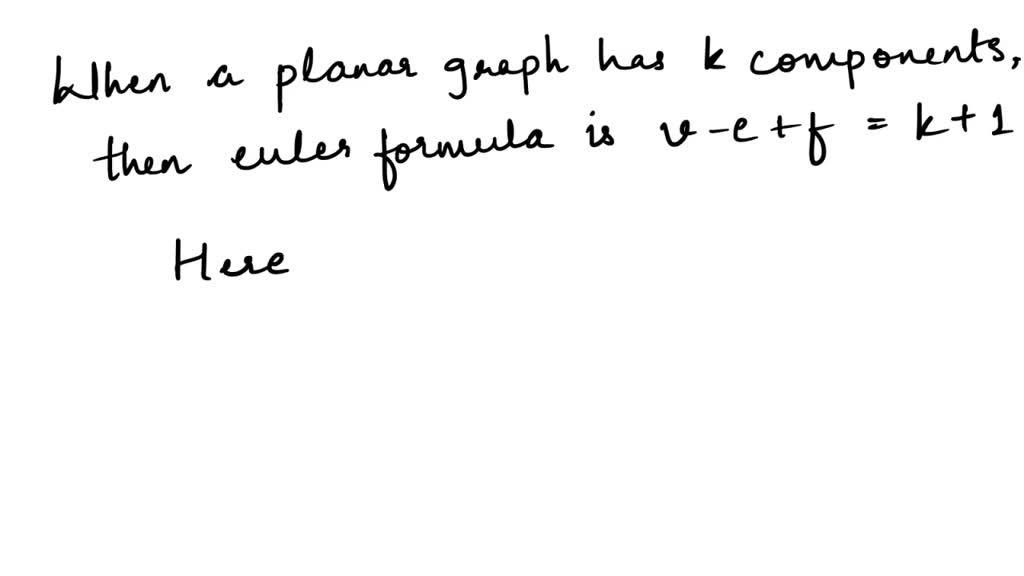 When a planar graph has k components,
then euler formula is v-e+f = k+1
Here